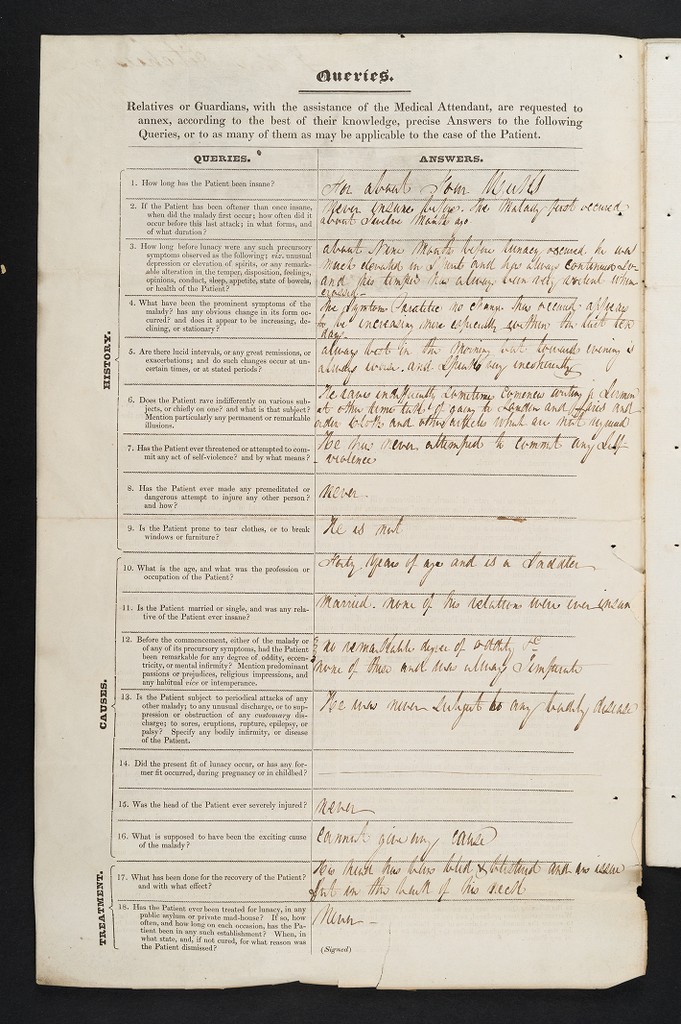 Queries.
Relatives or Guardians, with the assistance of the Medical Attendant, are requested to
annex, according to the best of their knowledge, precise Answers to the following
Queries, or to as many of them as may be applicable to the case of the Patient.
QUERIES.
ANSWERS.
HISTORY.
1. How long has the Patient been insane?
For about Four Months
2. If the Patient has been oftener than once insane,
when did the malady first occur; how often did it
occur before this last attack; in what forms, and
of what duration?
Never insane before. The Malady first occured
about Twelve Month ago
3. How long before lunacy were any such precursory
symptoms observed as the following; viz. unusual
depression or elevation of spirits, or any remark-
able alteration in the temper, disposition, feelings,
opinions, conduct, sleep, appetite, state of bowels,
or health of the Patient?
about Nine Month before lunacy occured he was
much elevated in Spirits and has always continued so
and his temper has always been very violent when
crossed
4. What have been the prominent symptoms of the
malady? has any obvious change in its form oc-
curred? and does it appear to be increasing, de-
clining, or stationary?
the Symptom no change has occured appears
to be increasing more especially within the last ten
days
5. Are there lucid intervals, or any great remissions, or
exacerbations; and do such changes occur at un-
certain times, or at stated periods?
always best in the Morning but towards evening is
always worse and Speaks very incoherently
6. Does the Patient rave indifferently on various sub-
jects, or chiefly on one? and what is that subject?
Mention particularly any permanent or remarkable
illusions.
He raves indifferently Sometimes comences writing a Sermon
at other times talks of going to London and Paris and
order Cloth and other articles which are not required
7. Has the Patient ever threatened or attempted to com-
mit any act of self-violence? and by what means?
He has never attempted to commit any Self
violence
8. Has the Patient ever made any premeditated or
dangerous attempt to injure any other person?
and how?
never
9. Is the Patient prone to tear clothes, or to break
windows or furniture?
He is not
CAUSES.
10. What is the age, and what was the profession or
occupation of the Patient?
Forty Years of age and is a Saddler
11. Is the Patient married or single, and was any rela-
tive of the Patient ever insane?
Married. none of his relations were ever insane
12. Before the commencement, either of the malady or
of any of its precursory symptoms, had the Patient
been remarkable for any degree of oddity, eccen-
tricity, or mental infirmity? Mention predominant
passions or prejudices, religious impressions, and
any habitual vice or intemperance.
no remarkable degree of oddity &c
none of these and was always Temperate
13. Is the Patient subject to periodical attacks of any
other malady; to any unusual discharge, or to sup-
pression or obstruction of any customary dis-
charge; to sores, eruptions, rupture, epilepsy, or
palsy? Specify any bodily infirmity, or disease
of the Patient.
He was never Subject to any bodily disease
14. Did the present fit of lunacy occur, or has any for-
mer fit occurred, during pregnancy or in childbed?
15. Was the head of the Patient ever severely injured?
never
16. What is supposed to have been the exciting cause
of the malady?
cannot give any cause
TREATMENT.
17. What has been done for the recovery of the Patient?
and with what effect?
His head has been bled & blistered and an issue
put in the back of his neck
18. Has the Patient ever been treated for lunacy, in any
public asylum or private mad-house? If so, how
often, and how long on each occasion, has the Pa-
tient been in any such establishment? When, in
what state, and, if not cured, for what reason was
the Patient dismissed?
Never
(Signed)